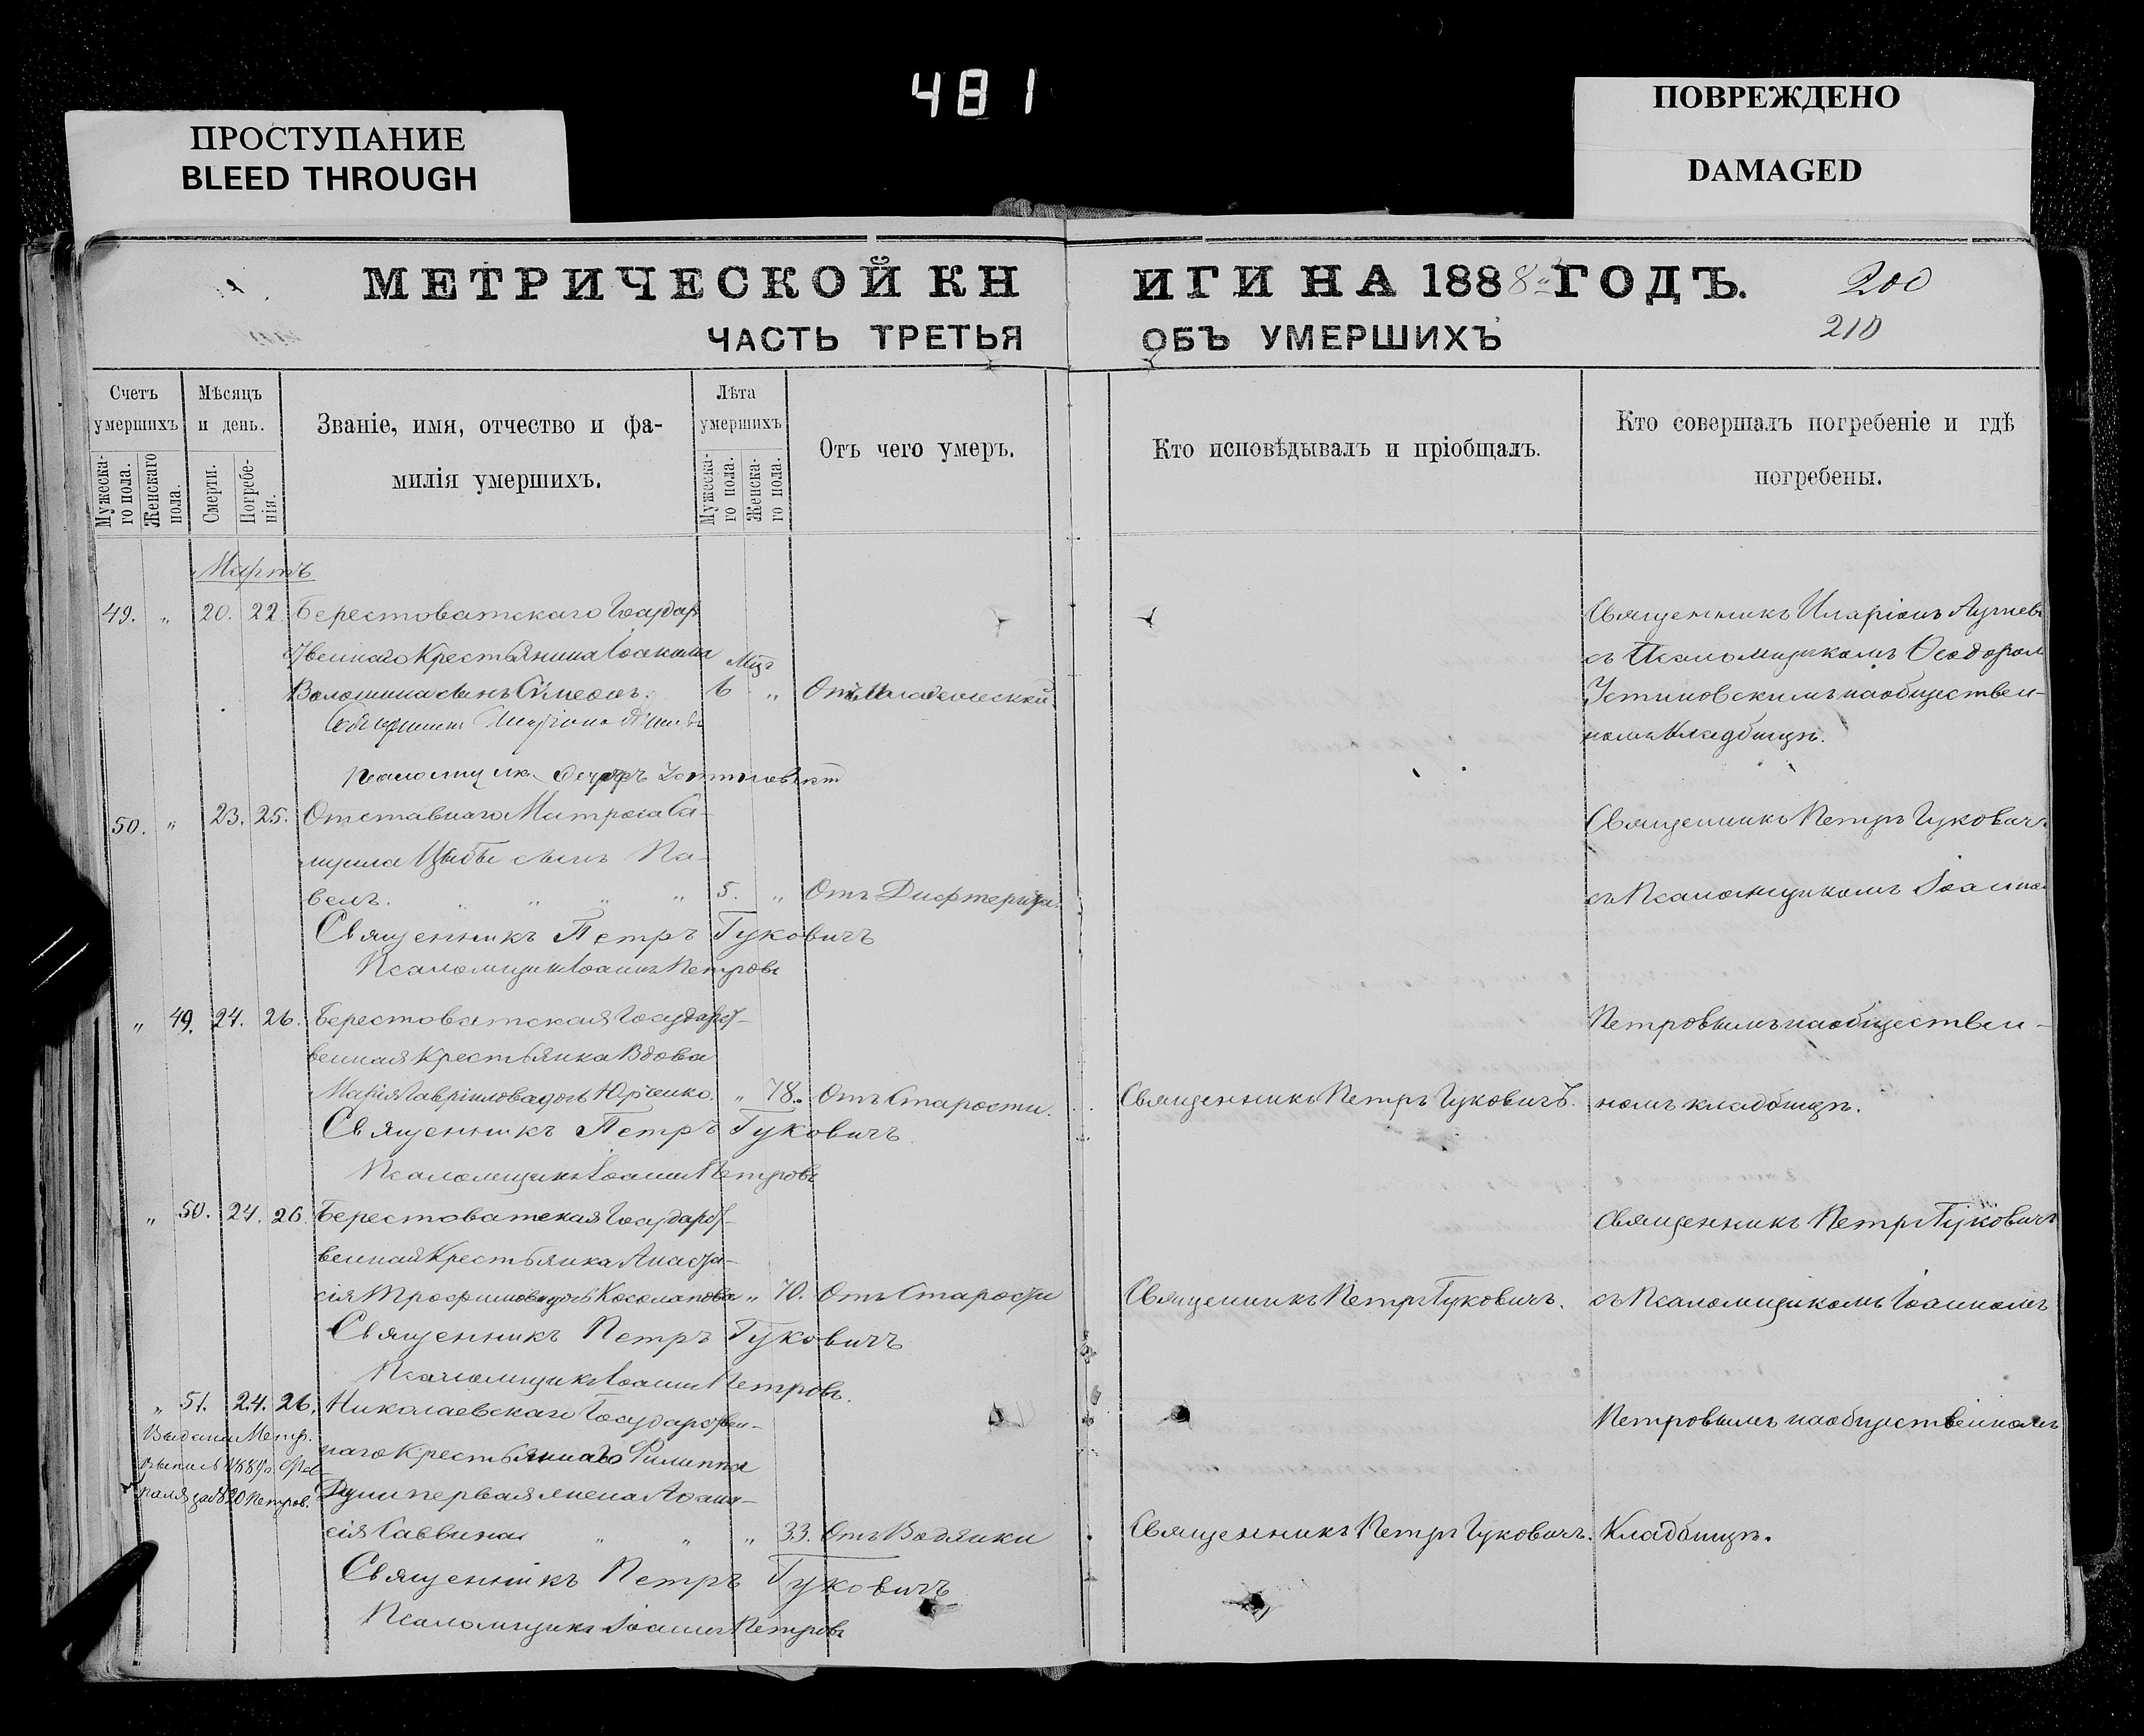 481
ПРОСТУПАНИЕ
BLEED THROUGH
ПОВРЕЖДЕНО
DAMAGED
МЕТРИЧЕСКОЙ КНИГИ НА 1888 ГОДЪ.
200
210
ЧАСТЬ ТРЕТЬЯ ОБЪ УМЕРШИХЪ
Счетъ умершихъ
Мужеска-го пола.
Женскаго пола.
Мѣсяцъ и день.
Смерти.
Погребе-нія.
Званіе, имя, отчество и фа-
милія умершихъ.
Лѣта умершихъ
Мужеска-го пола.
Женска-го пола.
Отъ чего умеръ.
Кто исповѣдывалъ и пріобщалъ.
Кто совершалъ погребеніе и гдѣ
погребены.
Мартъ
49. „ 20. 22. Берестоватскаго Государ
ственнаго Крестьянина Іоакима
Волошина сынъ Сѷмеонъ. 6 „ Отъ Младенческой.
Священникъ Иларіонъ
съ Псаломщикомъ Ѳеодоромъ
Устиновскимъ на обществен-
номъ Кладбищѣ.
Псаломщикъ Ѳеодоръ Устиновскій
50. „ 23. 25. Отставнаго Матроса Са-
муила Цыбы сынъ Па-
велъ. „ „ „ „ 5. „ Отъ Дифтерита.
Священникъ Петръ Гуковичъ
съ Псаломщикомъ Іоанно
Священникъ Петръ Гуковичъ
Псаломщикъ Іоаннъ Петровъ
„ 49. 24. 26. Берестоватская Государст-
венная Крестьянка Вдова
Марія Гавріилова дочь Юрченко. „ 78. Отъ Старости. Священникъ Петръ Гуковичъ.
Петровымъ на обществен-
номъ кладбищѣ.
Священникъ Петръ Гуковичъ
Псаломщикъ Іоаннъ Петровъ
„ 50. 24. 26. Берестоватская Государст-
венная Крестьянка Анаста-
сія Трофимова дочь Косолапова „ 70. Отъ Старости Священникъ Петръ Гуковичъ.
Священникъ Петръ Гуковичъ
съ Псаломщикомъ Іоанномъ
Священникъ Петръ Гуковичъ
Псаломщикъ Іоаннъ Петровъ.
„ 51. 24. 26. Николаевскаго Государствен-
наго Крестьянина Филиппа
первая жена Аѳана-
сія Саввина „ „ „ 33. Отъ Водянки Священникъ Петръ Гуковичъ.
Петровымъ на общественномъ
Кладбищѣ.
Выдана Метр.
Священникъ Петръ Гуковичъ
Псаломщикъ Іоаннъ Петровъ